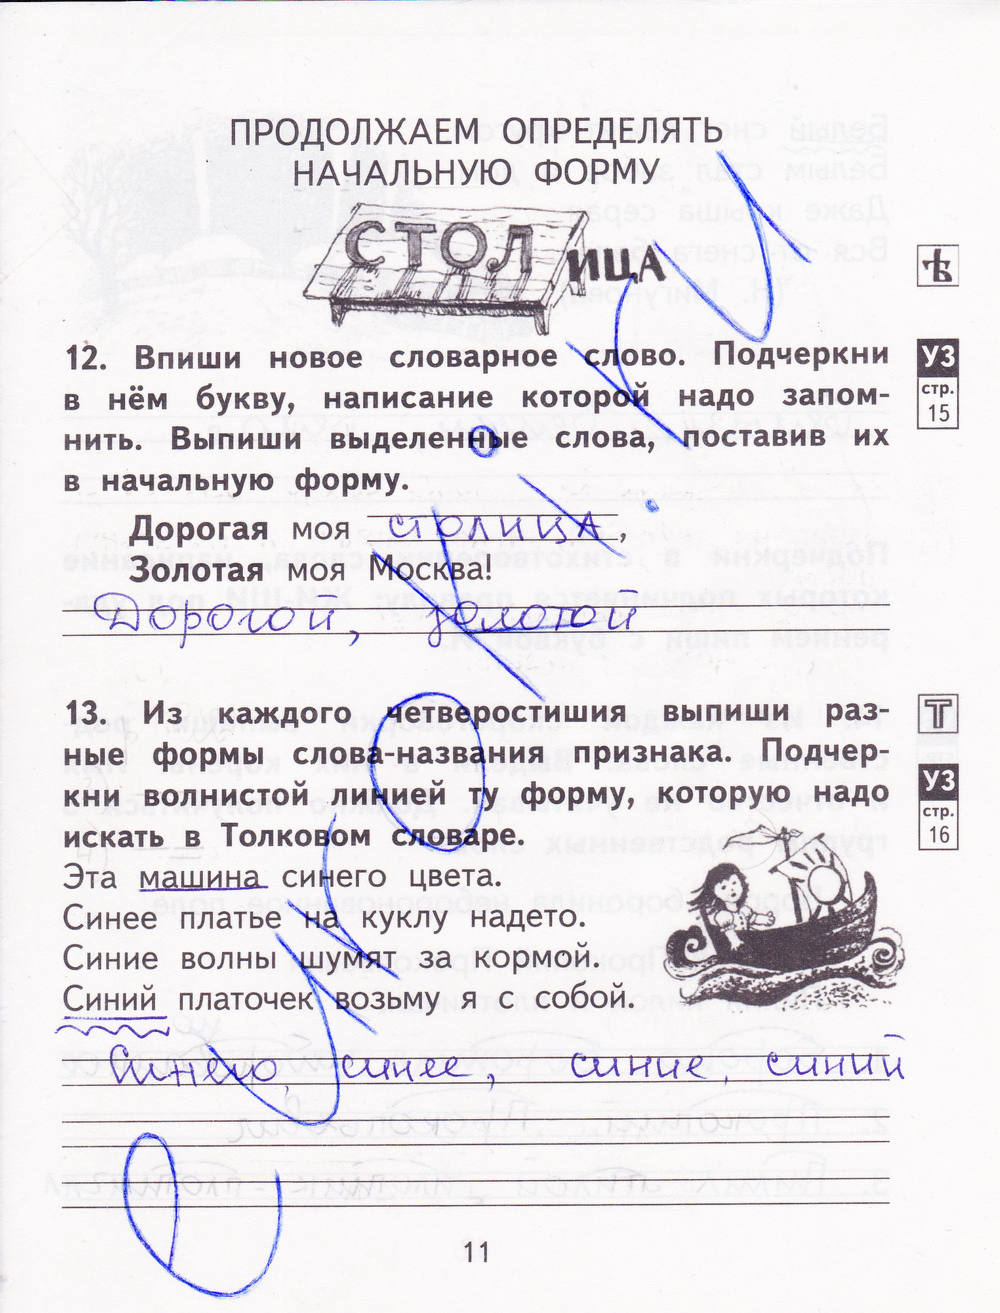 ПРОДОЛЖАЕМ ОПРЕДЕЛЯТЬ
НАЧАЛЬНУЮ ФОРМУ
СТОЛИЦА
12. Впиши новое словарное слово. Подчеркни
в нём букву, написание которой надо запом-
нить. Выпиши выделенные слова, поставив их
в начальную форму.
УЗ
стр.
15
Дорогая моя столица,
Золотая моя Москва!
Дорогой, золотой
13. Из каждого четверостишия выпиши раз-
ные формы слова-названия признака. Подчер-
кни волнистой линией ту форму, которую надо
искать в Толковом словаре.
Т
УЗ
стр.
16
Эта машина синего цвета.
Синее платье на куклу надето.
Синие волны шумят за кормой.
Синий платочек возьму я с собой.
Синего, синее, синие, синий
11